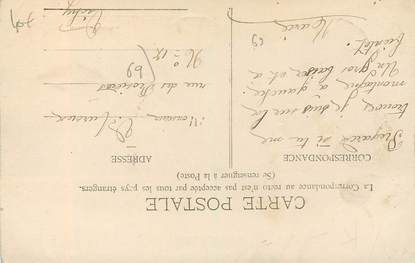 CARTE POSTALE
La Correspondance au recto n'est pas acceptée par tous les pays étrangers.
(Se renseigner à la Poste)
CORRESPONDANCE
Regardez si tu me
trouve je suis sur la
montagne a gauche
Un gros baiser et a
bientot
Marie
ADRESSE
Monsieur
rue des
N° 18
Vichy